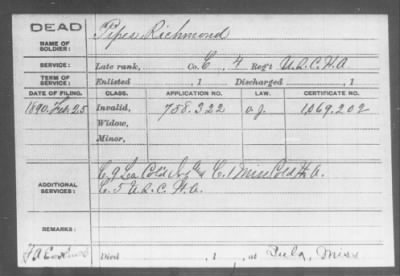 DEAD
NAME OF SOLDIER: Pipes, Richmond
SERVICE: Late rank, Co. C, 4 Reg't U.S.C.H.A
TERM OF SERVICE: Enlisted , 1 Discharged , 1
DATE OF FILING. CLASS. APPLICATION NO. LAW. CERTIFICATE NO.
1890. Feb. 25 Invalid, 758.322 1,069.202
Widow,
Minor,
ADDITIONAL SERVICES: C. 9 La Col'd C. 1 Miss Col'd H.A.
C. 5 U.S.C.H.A.
REMARKS:
Died , 1 , at Miss